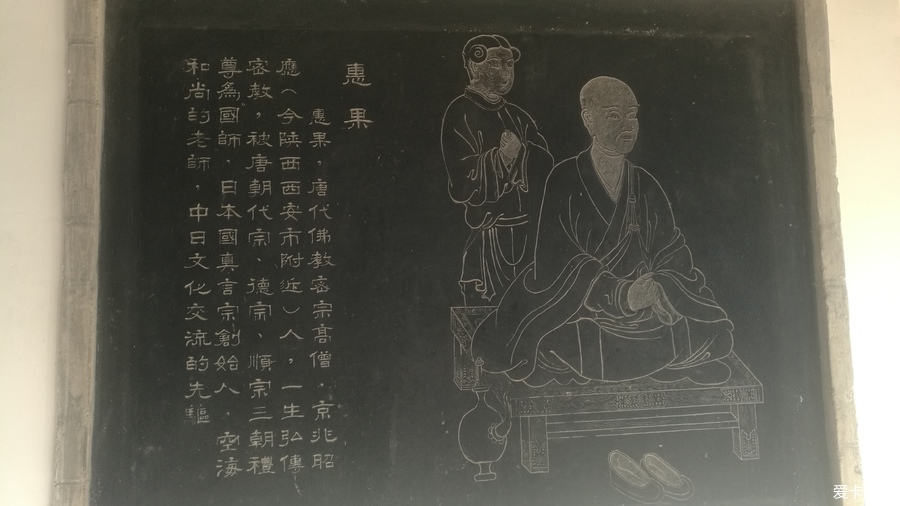 惠果
惠果，唐代佛教密宗高僧．京兆昭
應（今陝西西安市附近）人，一生弘傳
密教，被唐朝代宗、德宗、順宗三朝禮
尊爲國師．日本國真言宗創始人．空海
和尚的老師，中日文化交流的先驅
爱卡